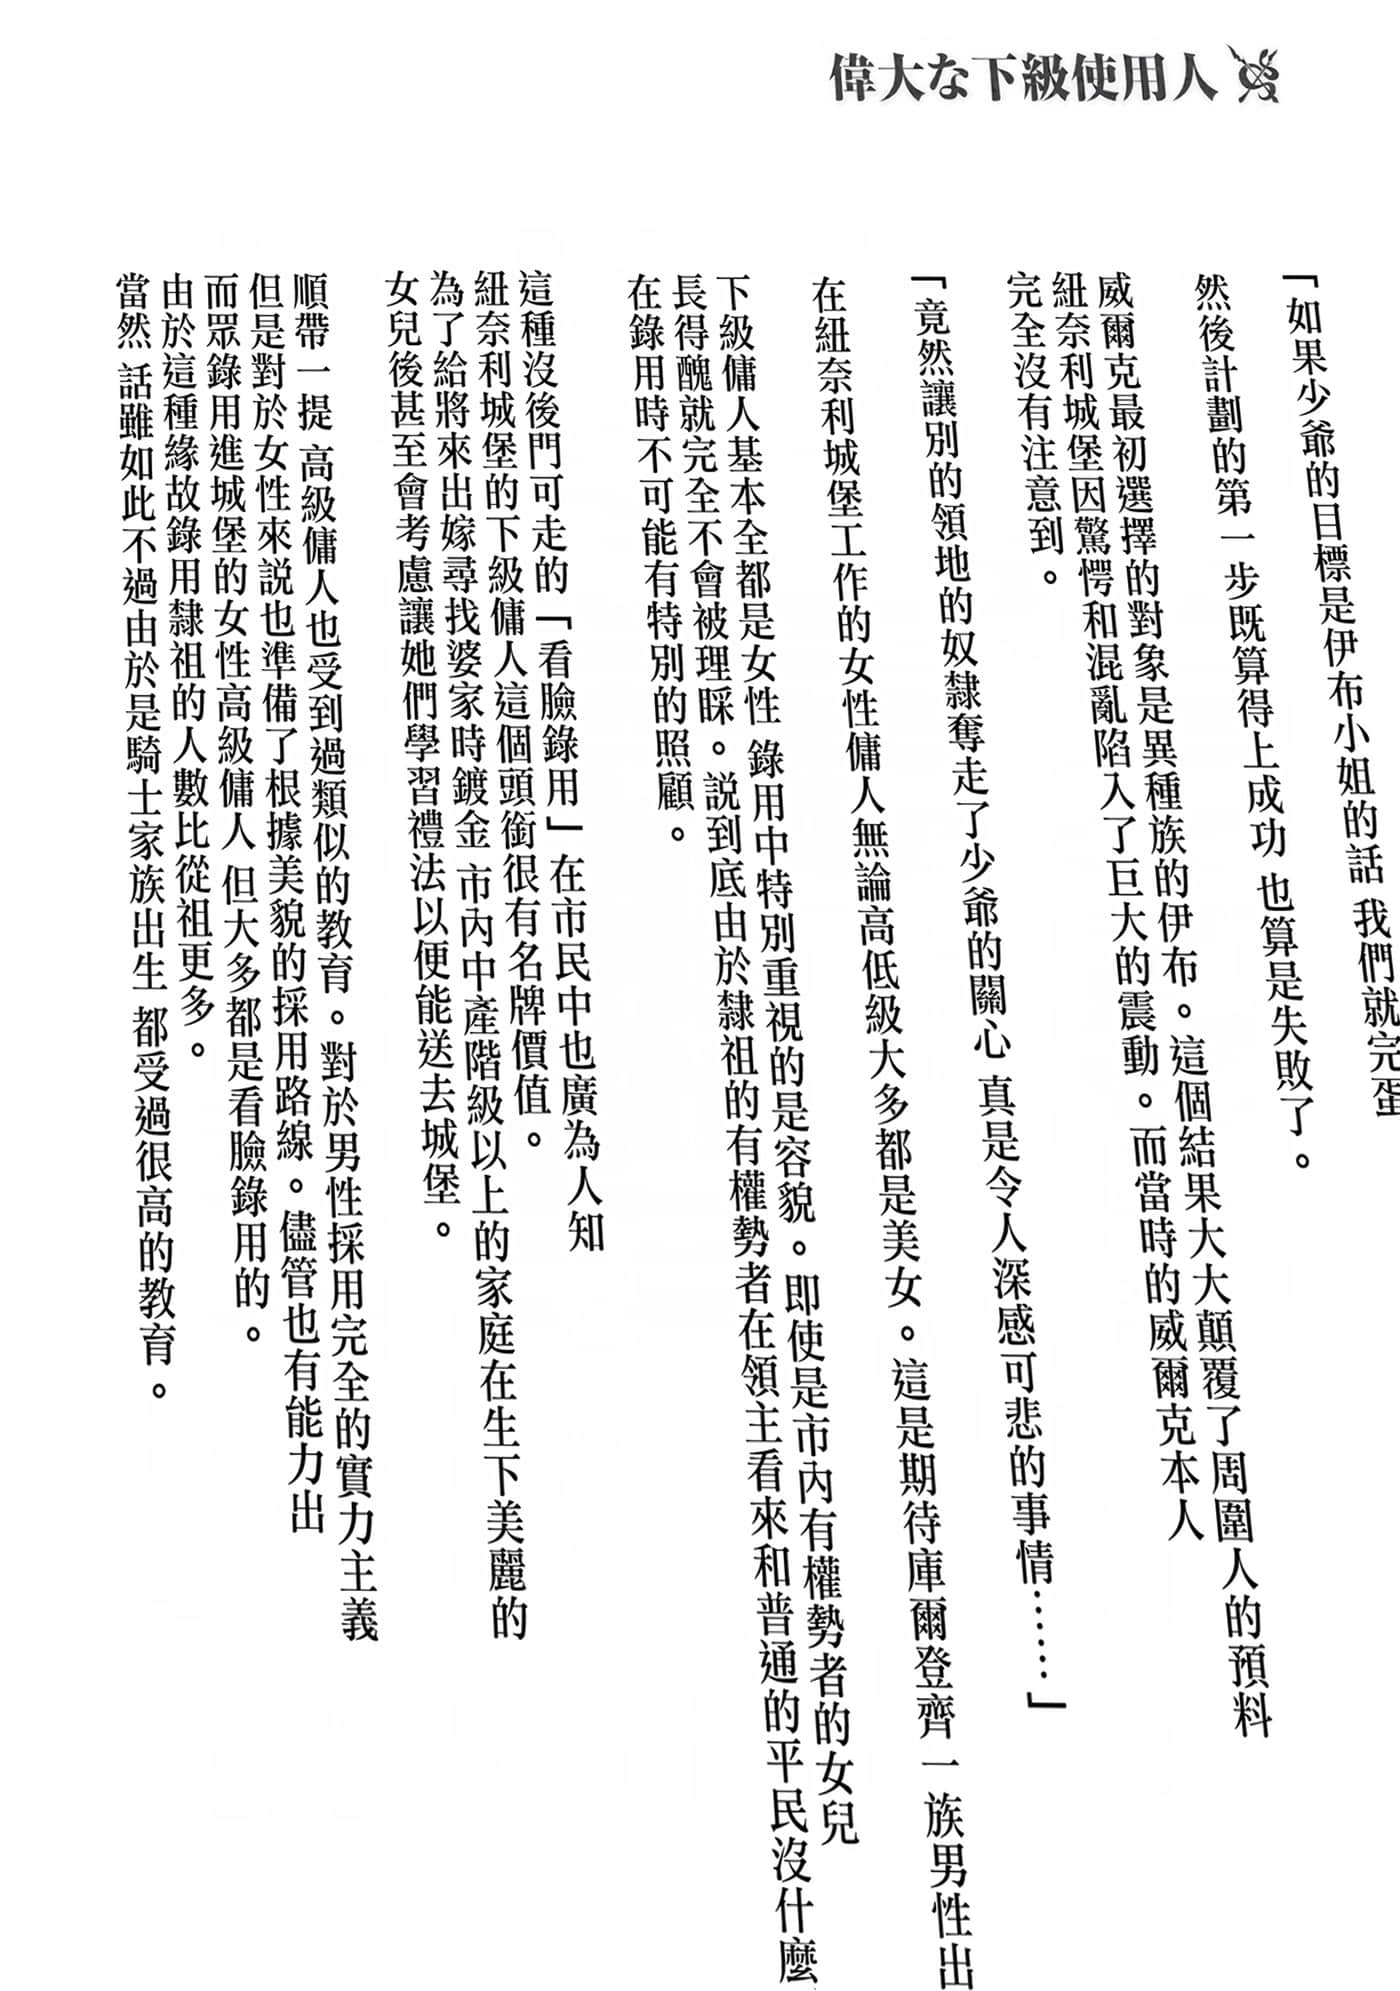 偉大な下級使用人
「如果少爺的目標是伊布小姐的話 我們就完蛋
然後計劃的第一步既算得上成功 也算是失敗了。
威爾克最初選擇的對象是異種族的伊布。這個結果大大顛覆了周圍人的預料
紐奈利城堡因驚愕和混亂陷入了巨大的震動。而當時的威爾克本人
完全沒有注意到。
「竟然讓別的領地的奴隸奪走了少爺的關心 真是令人深感可悲的事情……」
在紐奈利城堡工作的女性傭人無論高低級大多都是美女。這是期待庫爾登齊一族男性出
下級傭人基本全都是女性 錄用中特別重視的是容貌。即使是市內有權勢者的女兒
長得醜就完全不會被理睬。説到底由於隸祖的有權勢者在領主看來和普通的平民沒什麼
在錄用時不可能有特別的照顧。
這種沒後門可走的「看臉錄用」在市民中也廣為人知
紐奈利城堡的下級傭人這個頭銜很有名牌價值。
為了給將來出嫁尋找婆家時鍍金 市內中產階級以上的家庭在生下美麗的
女兒後甚至會考慮讓她們學習禮法以便能送去城堡。
順帶一提 高級傭人也受到過類似的教育。對於男性採用完全的實力主義
但是對於女性來説也準備了根據美貌的採用路線。儘管也有能力出
而眾錄用進城堡的女性高級傭人 但大多都是看臉錄用的。
由於這種緣故錄用隸祖的人數比從祖更多。
當然 話雖如此不過由於是騎士家族出生 都受過很高的教育。